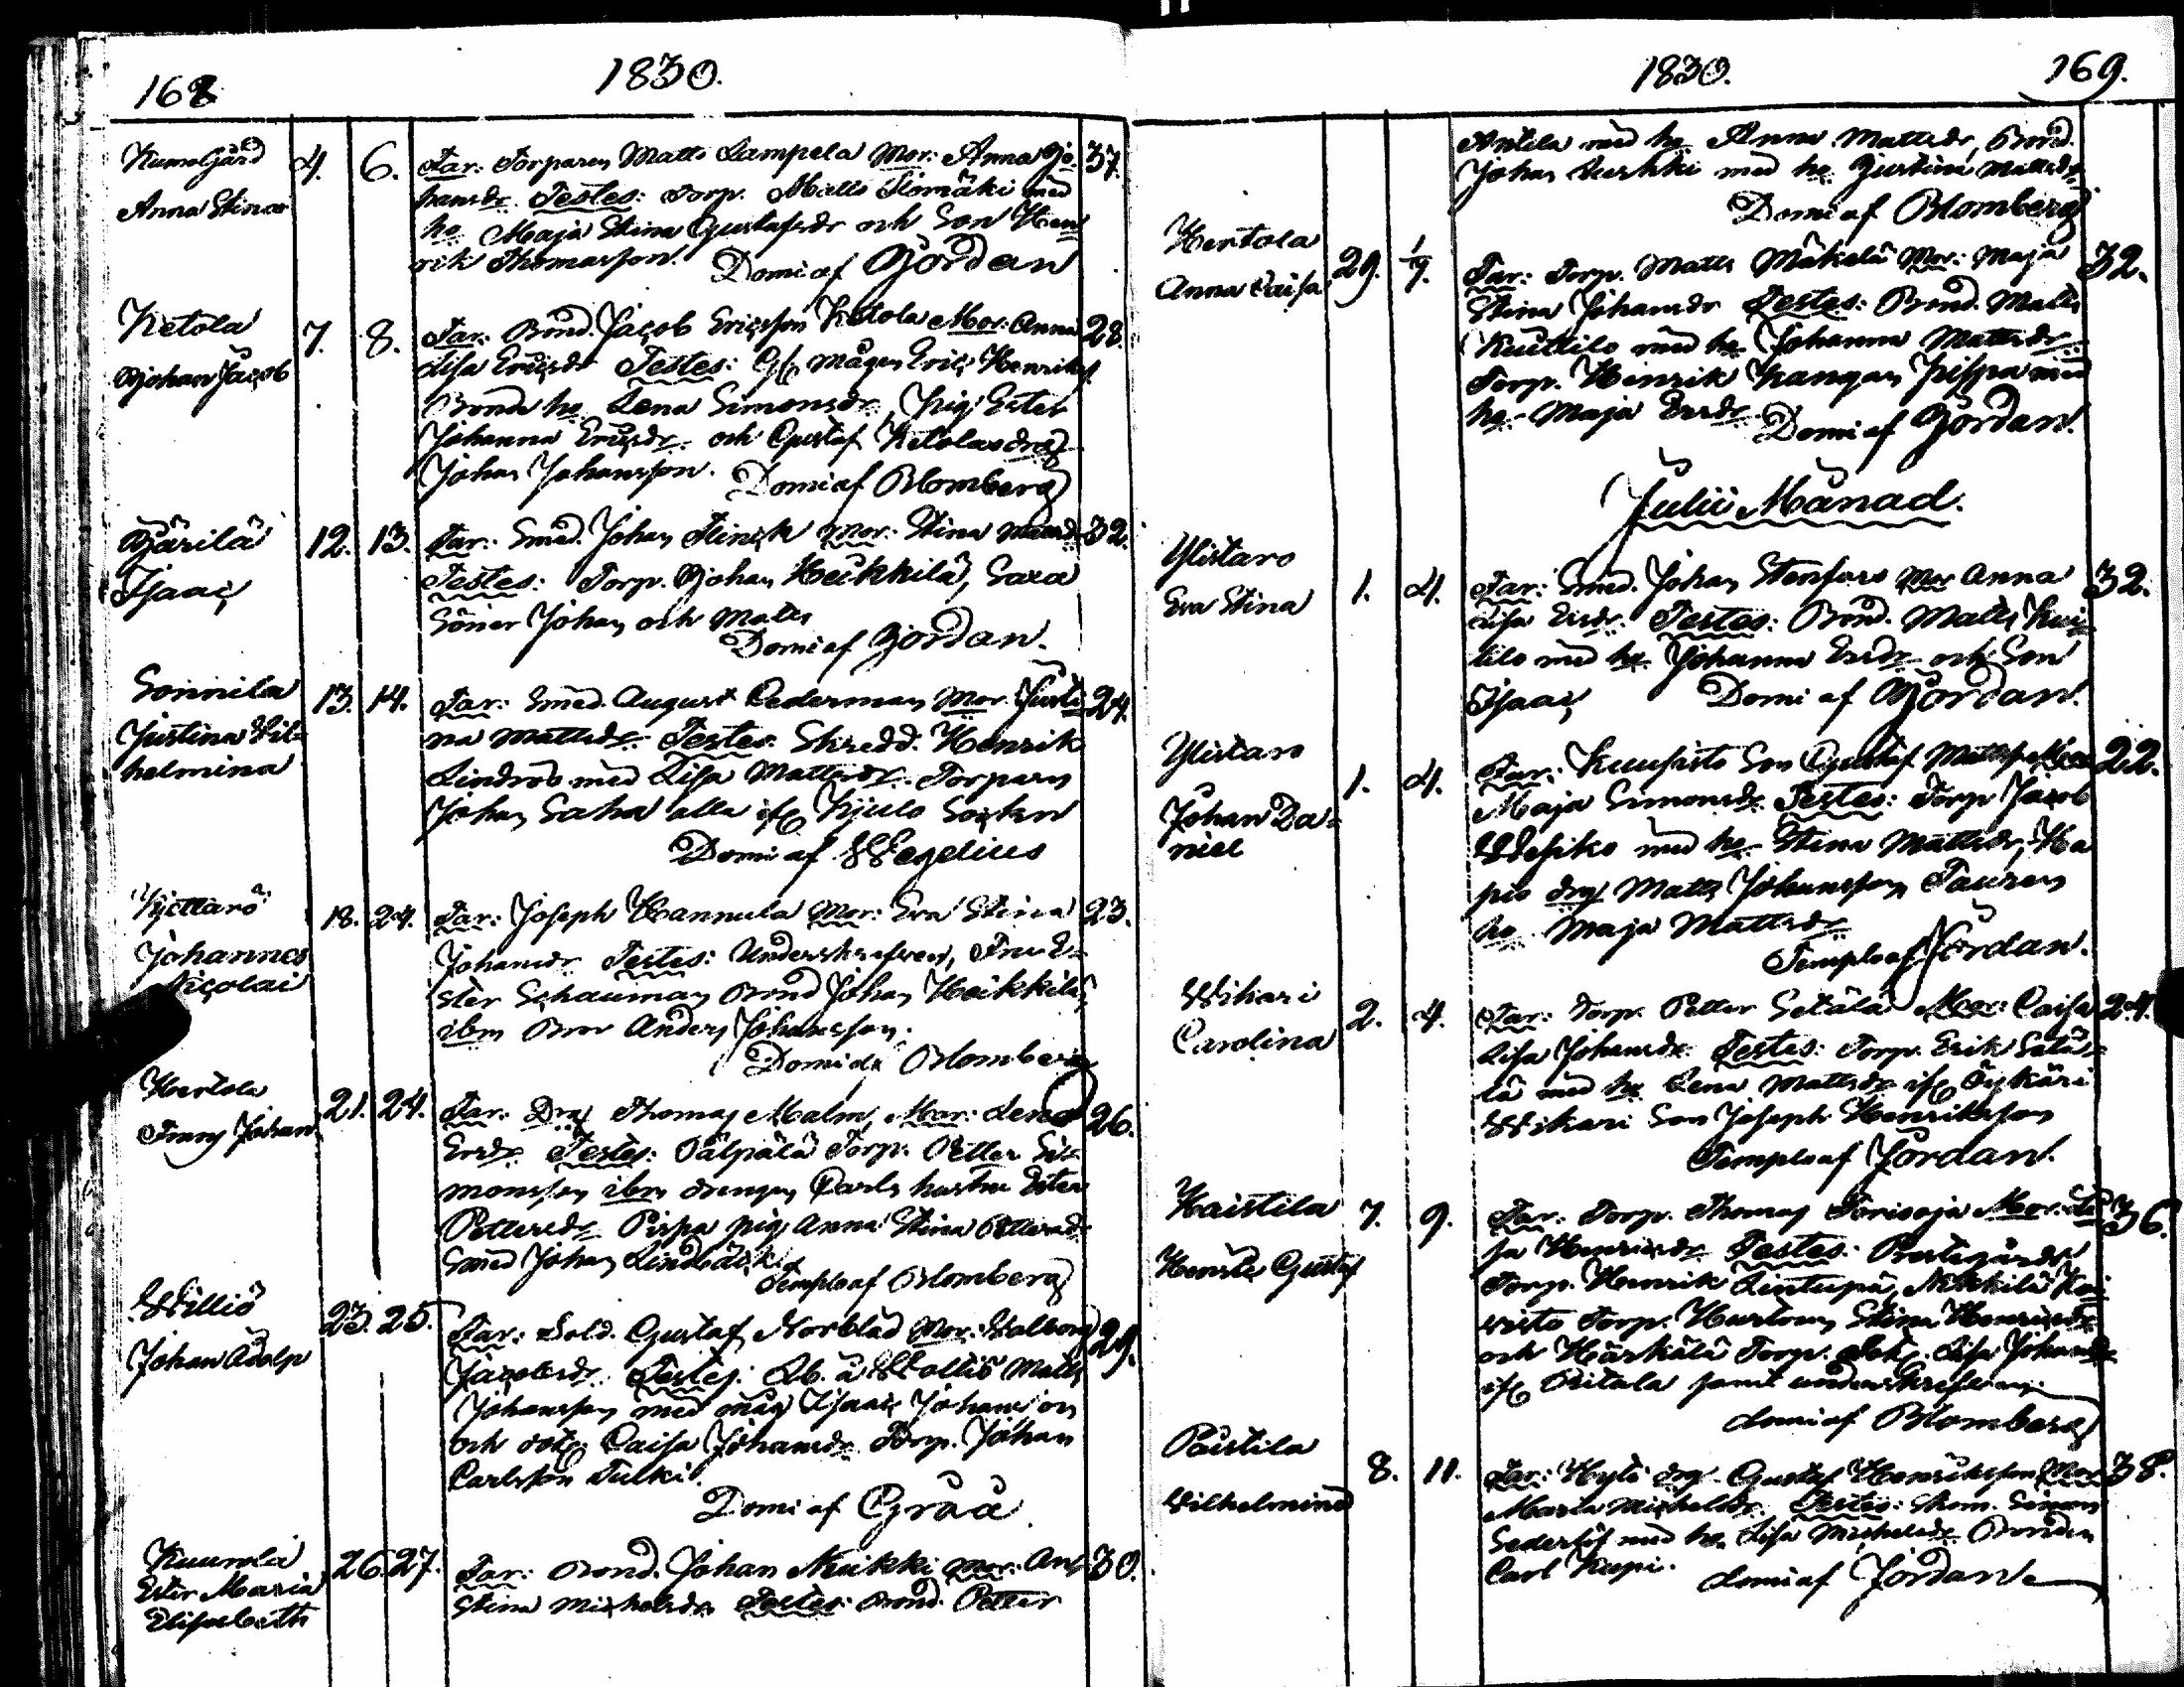 168
1830.
Kumogård
Anna Stina
4. 6. Far: Torparen Matts Lampela Mor: Anna Jo- 37.
hansdr Testes: Torp. Matts Slomäki med
ho Maja Stina Gustafsdr och Son Hen
rik Thomasson.
Domi af Jordan
Ketola
Johan Jacob
7. 8. Far: Bond. Jacob Ericsson Ketola Mor: Anna 28.
Lisa Ericsdr Testes: mågen Eric Henriks
Bonde ho Lena Simonsdr, pig Ester
Johanna Ericsdr och Gustaf Ketolas drg
Johan Johansson.
Domi af Blomberg
Järilä
Isaac
12. 13. Far: Smed. Johan Flinck Mor: Stina Mattsdr 32.
Testes: Torp. Johan Heikkilä, Saxa
Söner Johan och Matts
Domi af Jordan.
Sonnila
Justina Wil-
helmina
13. 14. Far: Smed. August Cederman Mor: Justi 24.
na Mattsdr Testes: Skredd. Henrik
Lindroo med Lisa Mattsdr Torparen
Johan Saha alla Kjulo Sockn
Domi af Wegelius
Kyttarö
Johannes
Nicolai
18. 24. Far: Joseph Hannula Mor: Eva Stina 23.
Johansdr Testes: Underskrefven, Fru E-
ster Schauman Bond Johan Heikkilä
ibm Bror Anders Johansson.
Domi af Blomberg
Hertola
Frans Johan
21. 24. Far: Drg Thomas Malm, Mor: Lena 26.
Ersdr Testes: Pälpälä Torp. Petter Si-
monsson ibm drengen Carls hustru Ester
Pettersdr Pispa pig Anna Stina Pettersdr
Smed Johan Lindbäck.
Templo af Blomberg
Williö
Johan Adolp
23. 25. Far: Sold. Gustaf Norblad Mor: Walborg 29.
Jacobsdr Testes: Rb. å Wolliö Matts
Johansson med måg Isaac Johansson
och dotr Caisa Johansdr Torp. Johan
Carlsson Tulki.
Domi af Gråå
Kuurola
Ester Maria
Elisabeth
26. 27. Far: Bond. Johan Muikki Mor: Ana 30.
Stina Michelsdr Testes: Bond. Petter
1830.
169.
Antila med ho Anna Mattsdr, Bond.
Johan med ho Justina Mattsdr
Domi af Blomberg
Hertola
Anna Caisa
29. 1/7. Far: Torp. Matts Mäkelä Mor: Maja 32.
Stina Johansdr Testes: Bond. Matts
Kuttilo med ho Johanna Mattsdr
Torp. Henrik Kangas Pispa med
ho Maja Ersdr
Domi af Jordan.
Julii Månad.
Ylistaro
Eva Stina
1. 4. Far: Smed. Johan Stenfors Mor Anna 32.
Lisa Ersdr. Testes: Bond. Matts Kui
tilo med ho Johanna Ersdr och Son
Isaac
Domi af Jordan.
Ylistaro
Johan Da-
niel
1. 4. Far: Kuusisto Son Gustaf Mattss. Mor 22.
Maja Simonsdr Testes: Torp Jacob
med ho Stina Mattsdr, Ha
pio drg Matts Johansson Tauren
ho Maja Mattsdr
Templo af Jordan.
Wikari
Carolina
2. 4. Far: Torp. Petter Setälä Mor: Caisa 24.
Lisa Johansdr Testes: Torp. Erik Setä-
lä med ho Lena Mattsdr
Wikari Son Joseph Henriksson
Templo af Jordan.
Haistila
Henric Gustaf
7. 9. Far: Torp. Thomas Torisoja Mor: Li 36.
sa Henricsdr Testes: Prestegårds
Torp. Henrik
Torp. Stina Henricsdr
och Härkälä Torp. dotr. Lisa Johansdr
Pitala samt underskrefven
domi af Blomberg
Paistila
Wilhelmina
8. 11. Far: drg Gustaf Henriksson Mor 38.
Maria Michelsdr. Testes: Skom. Simon
Sederlöf med ho Lisa Michelsdr Bonden
Carl Kupi.
domi af Jordan